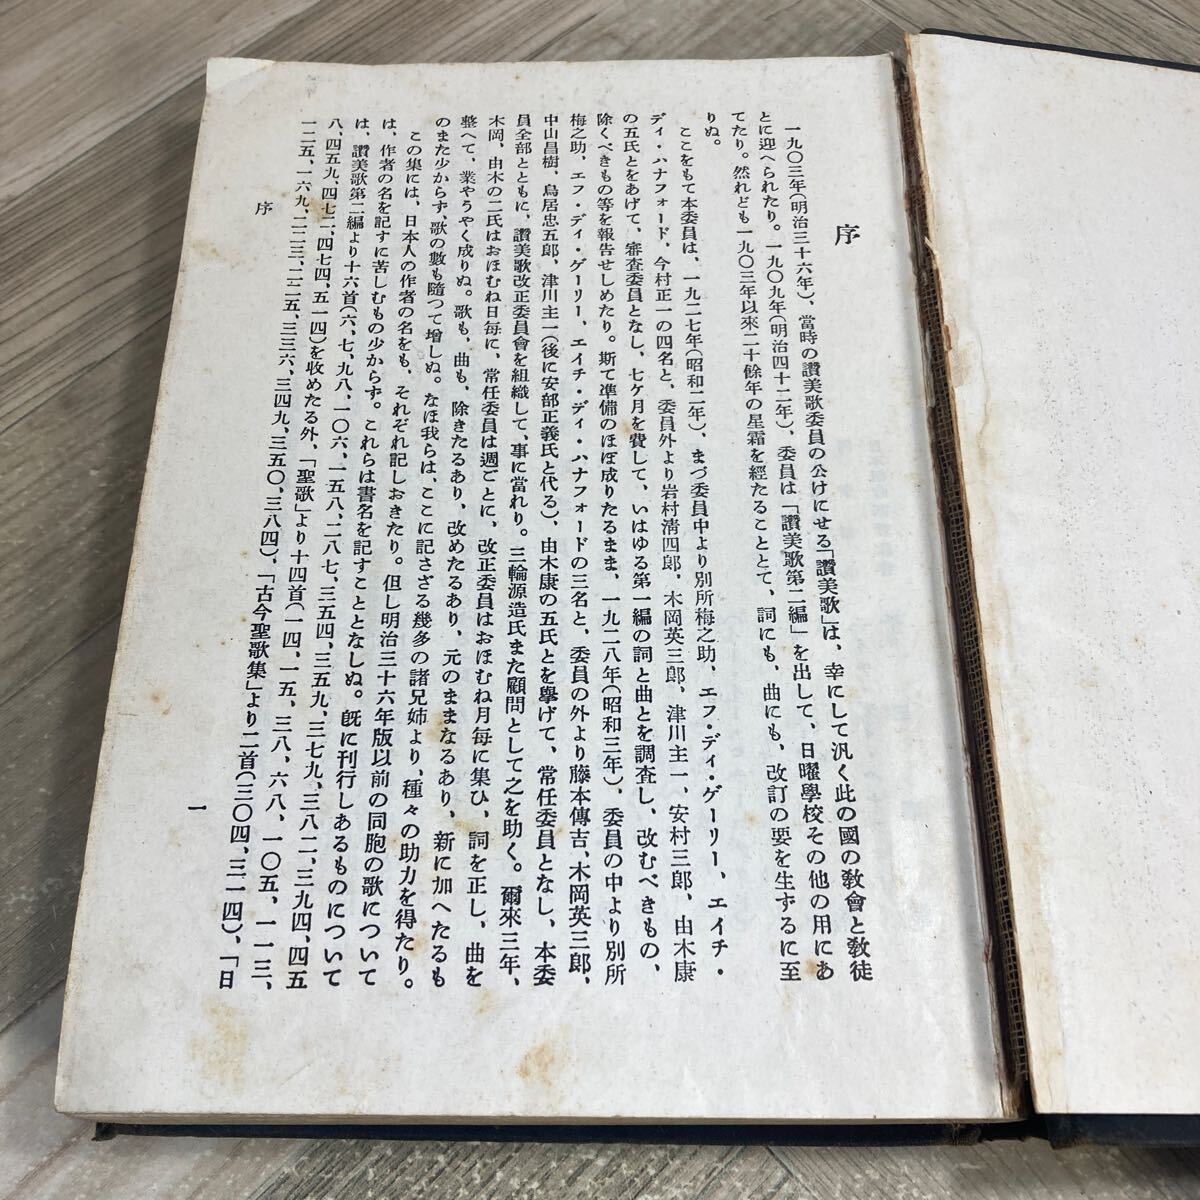 序
一九〇三年(明治三十六年)、當時の讚美歌委員の公けにせる「讚美歌」は、幸にして汎く此の國の敎會と敎徒
とに迎へられたり。一九〇九年(明治四十二年)、委員は「讚美歌第二編」を出して、日曜學校その他の用にあ
てたり。然れども一九〇三年以來二十餘年の星霜を經たることとて、詞にも、曲にも、改訂の要を生ずるに至
りぬ。
ここをもて本委員は、一九二七年(昭和二年)、まづ委員中より別所梅之助、エフ・ディ・ゲーリー、エイチ・
ディ・ハナフォード、今村正一の四名と、委員外より岩村淸四郎、木岡英三郎、津川主一、安村三郎、由木康
の五氏とをあげて、審査委員となし、七ケ月を費して、いはゆる第一編の詞と曲とを調査し、改むべきもの、
除くべきもの等を報告せしめたり。斯て準備のほぼ成りたるまま、一九二八年(昭和三年)、委員の中より別所
梅之助、エフ・ディ・ゲーリー、エイチ・ディ・ハナフォードの三名と、委員の外より藤本傳吉、木岡英三郎、
中山昌樹、鳥居忠五郎、津川主一(後に安部正義氏と代る)、由木康の五氏とを擧げて、常任委員となし、本委
員全部とともに、讚美歌改正委員會を組織して、事に當れり。三輪源造氏また顧問として之を助く。爾來三年、
木岡、由木の二氏はおほむね日每に、常任委員は週ごとに、改正委員はおほむね月每に集ひ、詞を正し、曲を
整へて、業やうやく成りぬ。歌も、曲も、除きたるあり、改めたるあり、元のままなるあり、新に加へたるも
のまた少からず、歌の數も隨つて增しぬ。なほ我らは、ここに記さざる幾多の諸兄姉より、種々の助力を得たり。
この集には、日本人の作者の名をも、それぞれ記しおきたり。但し明治三十六年版以前の同胞の歌について
は、作者の名を記すに苦しむもの少からず。これらは書名を記すこととなしぬ。旣に刊行しあるものについて
は、讚美歌第二編より十六首(六、七、九八、一〇六、一五八、二八七、三五四、三五九、三七九、三八二、三九四、四五
八、四五九、四七二、四七四、五一四)を收めたる外、「聖歌」より十四首(一四、一五、三八、六八、一〇五、一一三、
一二五、一六九、二二三、二二五、三三六、三四九、三五〇、三八四)、「古今聖歌集」より二首(三〇四、三一四)、「日
序
一